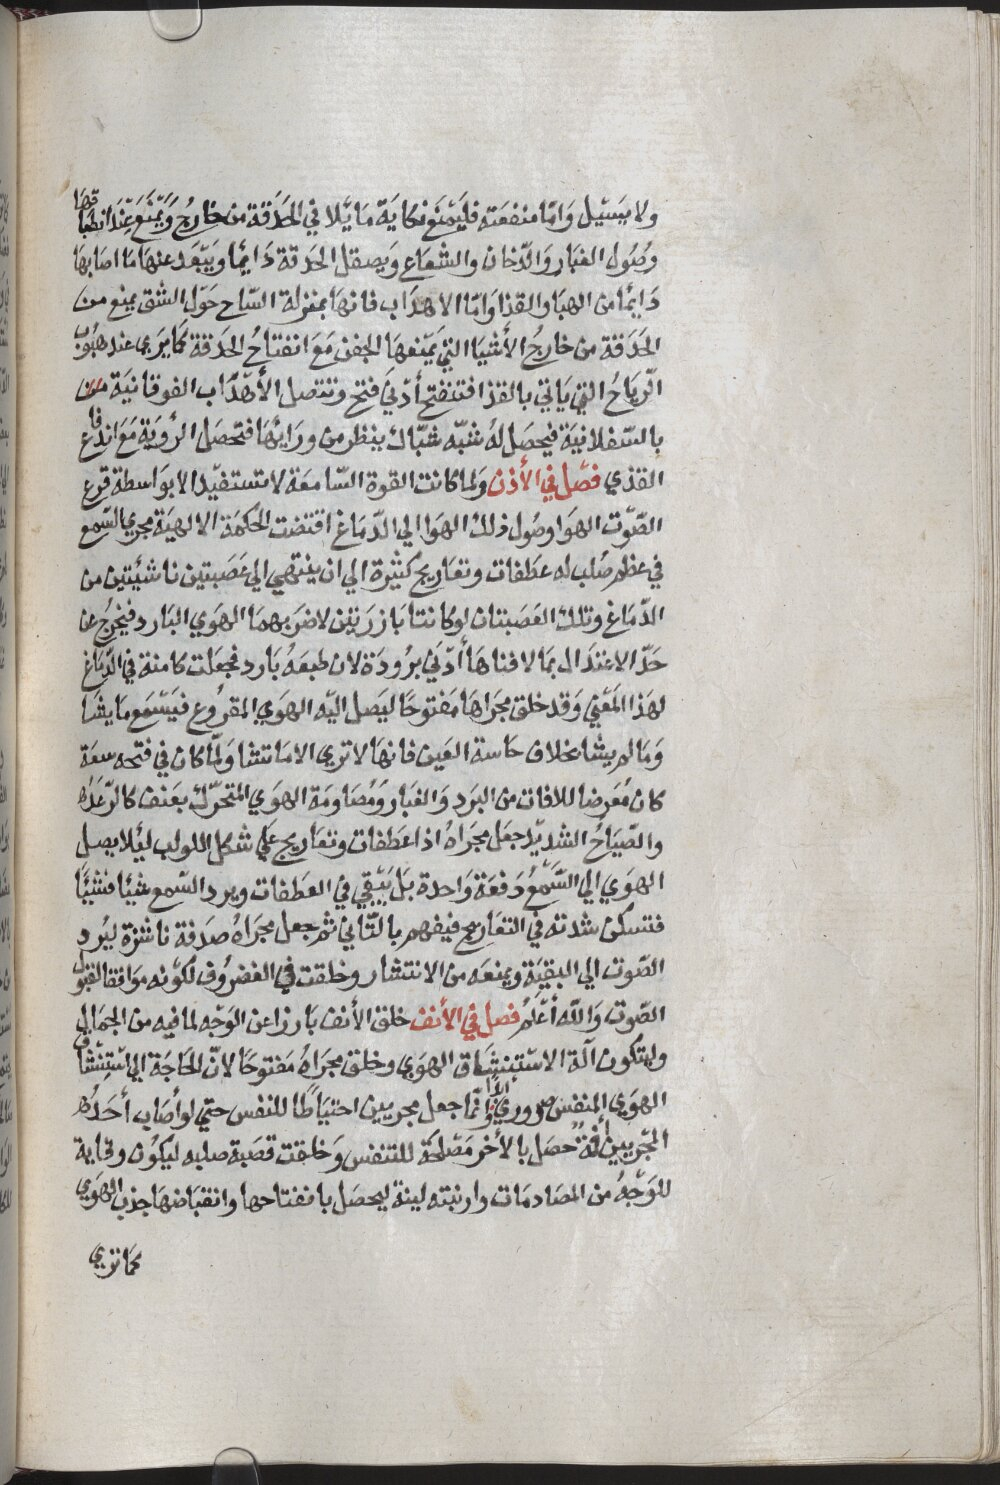 ولا يسيل واما منفعته فليمنع نكاية ما يلاقي الحدقة من خارج ويمنع عند انطباقها
وصول الغبار والدخان والشعاع ويصقل الحدقة دايما ويبعد عنها ما اصابها
دايما من الهبا والقذا واما الاهداب فانها بمنزلة السياج حول الشق يمنع من
الحدقة من خارج الأشيا التي يمنعها الجفن مع انفتاح الحدقة كما يري عند هبوب
الرياح التي ياتي بالقذا فتنفتح أدني فتح وتتصل الأهداب الفوقانية من
بالسفلانية فيحصل له شبه شباك ينظر من ورايها فتحصل الرؤية مع اندفاع
القذي فصل في الأذن ولما كانت القوة السامعة لا تستفيد الا بواسطة قرع
الصوت الهوا وصول ذلك الهوا الي الدماغ اقتضت الحكمة الالهية مجري السمع
في عظم صلب له عطفات وتعاريج كثيرة الي ان ينتهي الي عصبتين ناشيتين من
الدماغ وتلك العصبتان لو كانتا بارزتين لاضر بهما الهوي البارد فيخرج عن
حد الاعتدال بما لاقتاها أدني برودة لان طبعه بارد فجعلت كامنة في الدماغ
لهذا المعني وقد خلق مجراها مفتوحا ليصل اليه الهوي المقروع فيسمع ما يشا
وما لم يشا بخلاف حاسة العين فانها لا تري الا ما تشا ولما كان في فتحه سعة
كان معرضا للافات من البرد والغبار ومصاومة الهوي المتحرك بعنف كالرعد
والصياح الشديد جعل مجراه اذا عطفات وتعاريج علي شكل اللولب ليلا يصل
الهوي الي السمع دفعة واحدة بل يبقي في العطفات ويرد السمع شيئا فشيئا
فتسكن شدته في التعاريج فيفهم بالتاني ثم جعل مجراه صدفة ناشزة ليرد
الصوت الي البقية ويمنعه من الانتشار وخلقت في الغضروف لكونه موافقا لقبول
الصوت والله أعلم فصل في الأنف خلق الأنف بارزا عن الوجه لما فيه من الجمال
وليتكون آلة الاستنشاق الهوي وخلق مجراه مفتوحا لان الحاجة الي استنشاق
الهوي المنفس ضروري وانما جعل مجريين احتياطا للنفس حتي لو أصاب أحد
المجريين أفة حصل بالأخر مصلحة للتنفس وخلقت قصبة صلبه ليكون وقاية
للوجه من المصادمات وارنبته لينة ليحصل بانفتاحها وانقباضها جذب الهوي
كما تري